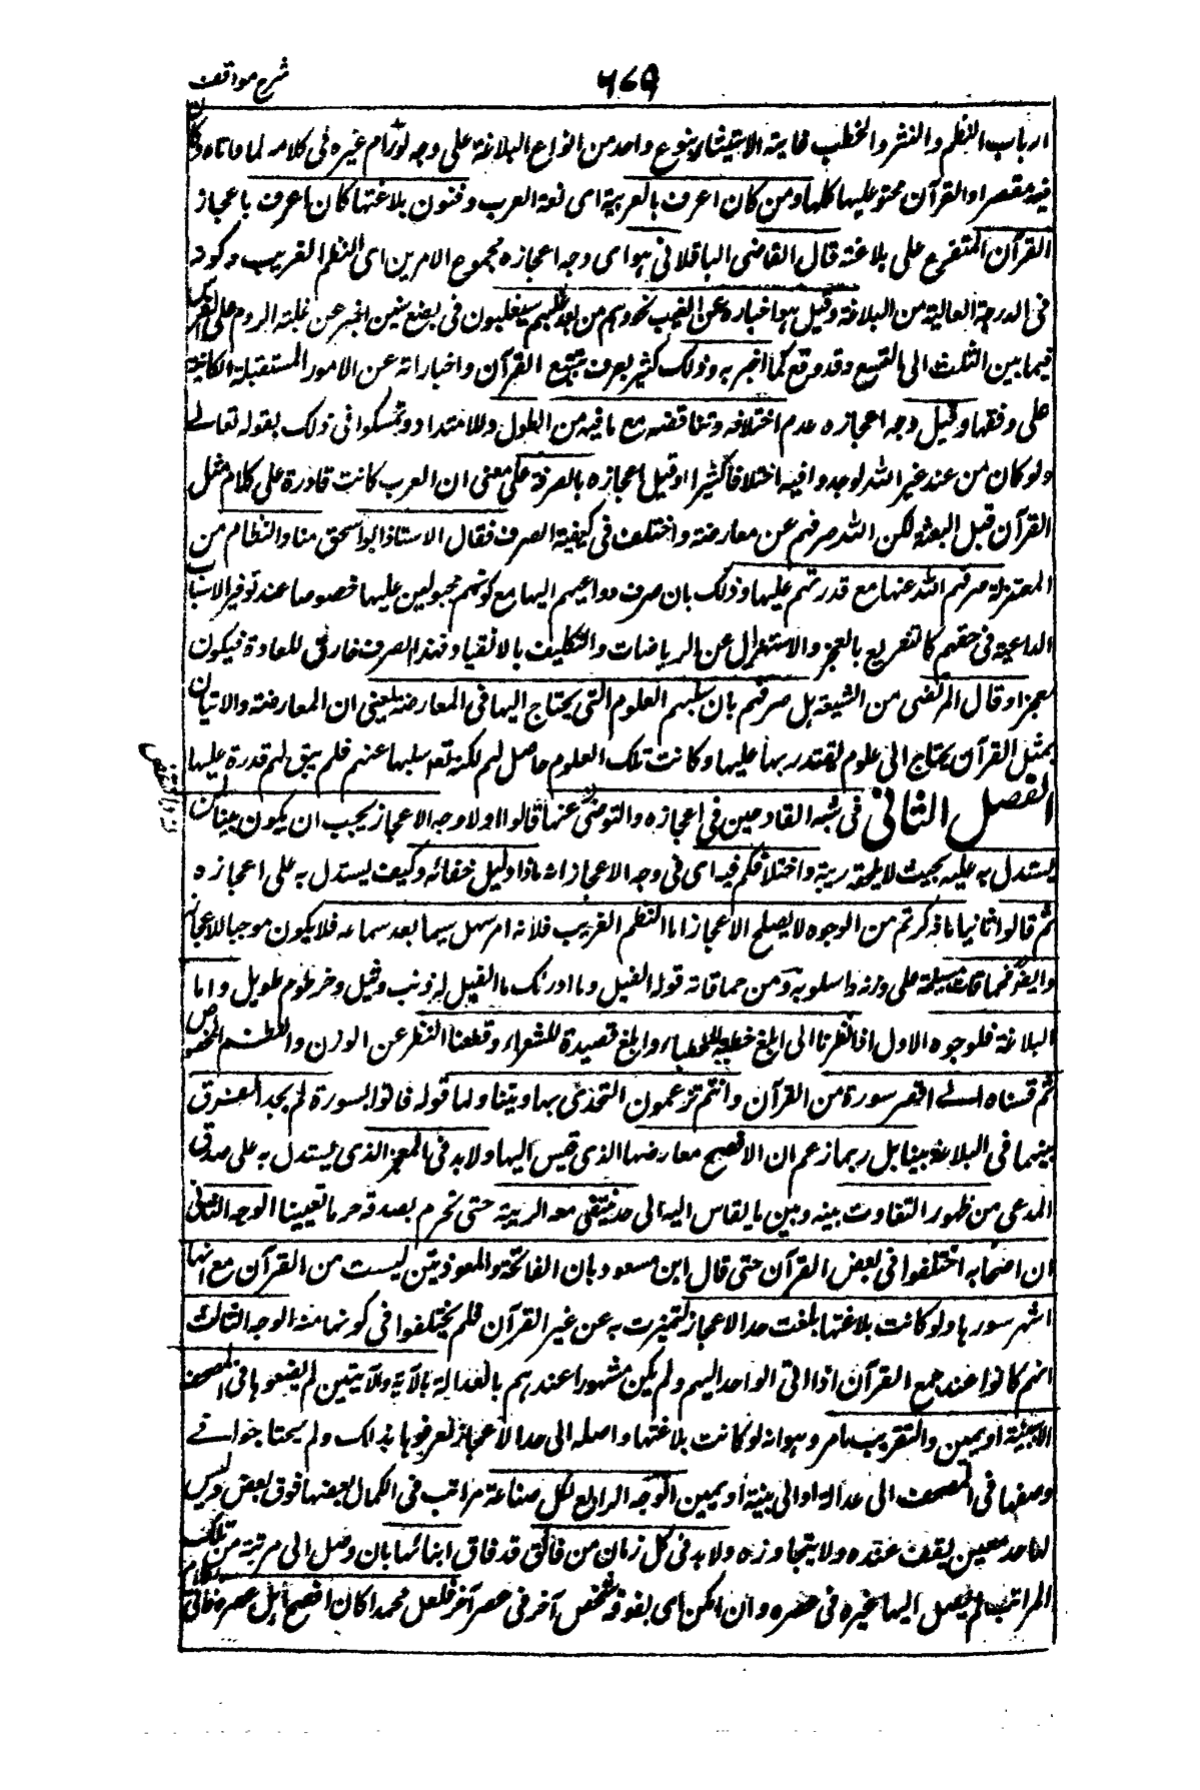 شرح مواقف
٦٧٩
ارباب النظم والنثر والخطب غاية الاستيثار بنوع واحد من انواع البلاغة على وجه لو رام غيره فى كلامه لما واتاه وكان
فيه مقصرا والقرآن محتو عليها كلها ومن كان اعرف بالعربية اى لغة العرب وفنون بلاغتها كان اعرف باعجاز
القرآن المتفرع على بلاغته قال القاضى الباقلانى هو اى وجه اعجازه مجموع الامرين اى النظم الغريب وكونه
فى الدرجة العالية من البلاغة وقيل هو اخباره عن الغيب نحو وهم من بعد غلبهم سيغلبون فى بضع سنين اخبر عن غلبة الروم على الفرس
فيما بين الثلث الى التسع وقد وقع كما اخبر به وذلك كثير يعرف بتتبع القرآن واخباراته عن الامور المستقبلة الكائنة
على وفقها وقيل وجه اعجازه عدم اختلافه وتناقضه مع ما فيه من الطول والامتداد وتمسكوا فى ذلك بقوله تعالى
ولو كان من عند غير الله لوجدوا فيه اختلافا كثيرا وقيل اعجازه بالصرفة على معنى ان العرب كانت قادرة على كلام مثل
القرآن قبل البعثة لكن الله صرفهم عن معارضته واختلف فى كيفية الصرف فقال الاستاذ ابو اسحق منا والنظام من
المعتزلة صرفهم الله عنها مع قدرتهم عليها وذلك بان صرف دواعيهم اليها مع كونهم مجبولين عليها خصوصا عند توفر الاسباب
الداعية فى حقهم كالتقريع بالعجز والاستنزال عن الرياسات والتكليف بالانقياد فهذا الصرف خارق للعادة فيكون
معجزا وقال المرتضى من الشيعة بل صرفهم بان سلبهم العلوم التى يحتاج اليها فى المعارضة يعنى ان المعارضة والاتيان
بمثل القرآن يحتاج الى علوم يقتدر بها عليها وكانت تلك العلوم حاصل لهم لكنه تعه سلبها عنهم فلم يبق لهم قدرة عليها
الفصل الثانى فى شبه القادحين فى اعجازه والتفصى عنها قالوا اولا وجه الاعجاز يجب ان يكون بينا لمن
يستدل به عليه بحيث لا يلحقه ريبة واختلافكم فيه اى فى وجه الاعجاز انه ماذا دليل خفائه وكيف يستدل به على اعجازه
ثم قالوا ثانيا ما ذكرتم من الوجوه لا يصلح الاعجاز اما النظم الغريب فلانه امر سهل سيما بعد سماعه فلا يكون موجبا للاعجاز
وايضا فحماقات مسيلمة على وزنه واسلوبه ومن حماقاته قوله الفيل وما ادرىك ما الفيل له ذنب وثيل وخرطوم طويل واما
البلاغة فلوجوه الاول اذا نظرنا الى ابلغ خطبة للخطباء وابلغ قصيدة للشعراء وقطعنا النظر عن الوزن والنظم المخصوص
ثم قسناه الى اقصر سورة من القرآن وانتم تزعمون التحدى بها ويتناولها قوله فاتوا بسورة لم يجد الفرق
بينهما فى البلاغة بينا بل ربما زعم ان الافصح معارضها الذى قيس اليها ولا بد فى المعجز الذى يستدل به على صدق
المدعى من ظهور التفاوت بينه وبين ما يقاس اليه الى حد ينتفى معه الريبة حتى نجزم بصدقه جزما يقينيا الوجه الثانى
ان اصحابه اختلفوا فى بعض القرآن حتى قال ابن مسعود بان الفاتحة والمعوذتين ليست من القرآن مع انها
اشهر سورها ولو كانت بلاغتها بلغت حد الاعجاز لتميزت به عن غير القرآن فلم يختلفوا فى كونها منه الوجه الثالث
انهم كانوا عند جمع القرآن اذا اتى الواحد اليهم ولم يكن مشهورا عندهم بالعدالة بالآية والآيتين لم يضعوها فى المصحف
الا ببينة او يمين والتقريب ما مر وهو انه لو كانت بلاغتها واصلة الى حد الاعجاز لعرفوها بذلك ولم يحتاجوا فى
وضعها فى المصحف الى عدالة او الى بينة او يمين الوجه الرابع لكل صناعة مراتب فى الكمال بعضها فوق بعض وليس
لها حد معين يقف عنده ولا يتجاوزه ولا بد فى كل زمان من فائق قد فاق ابنائها بان وصل الى مرتبة من تلك
المراتب لم يصل اليها غيره فى عصره وان امكن اى يفوقه شخص آخر فى عصر آخر فلعل محمدا كان افصح اهل عصره فاتى